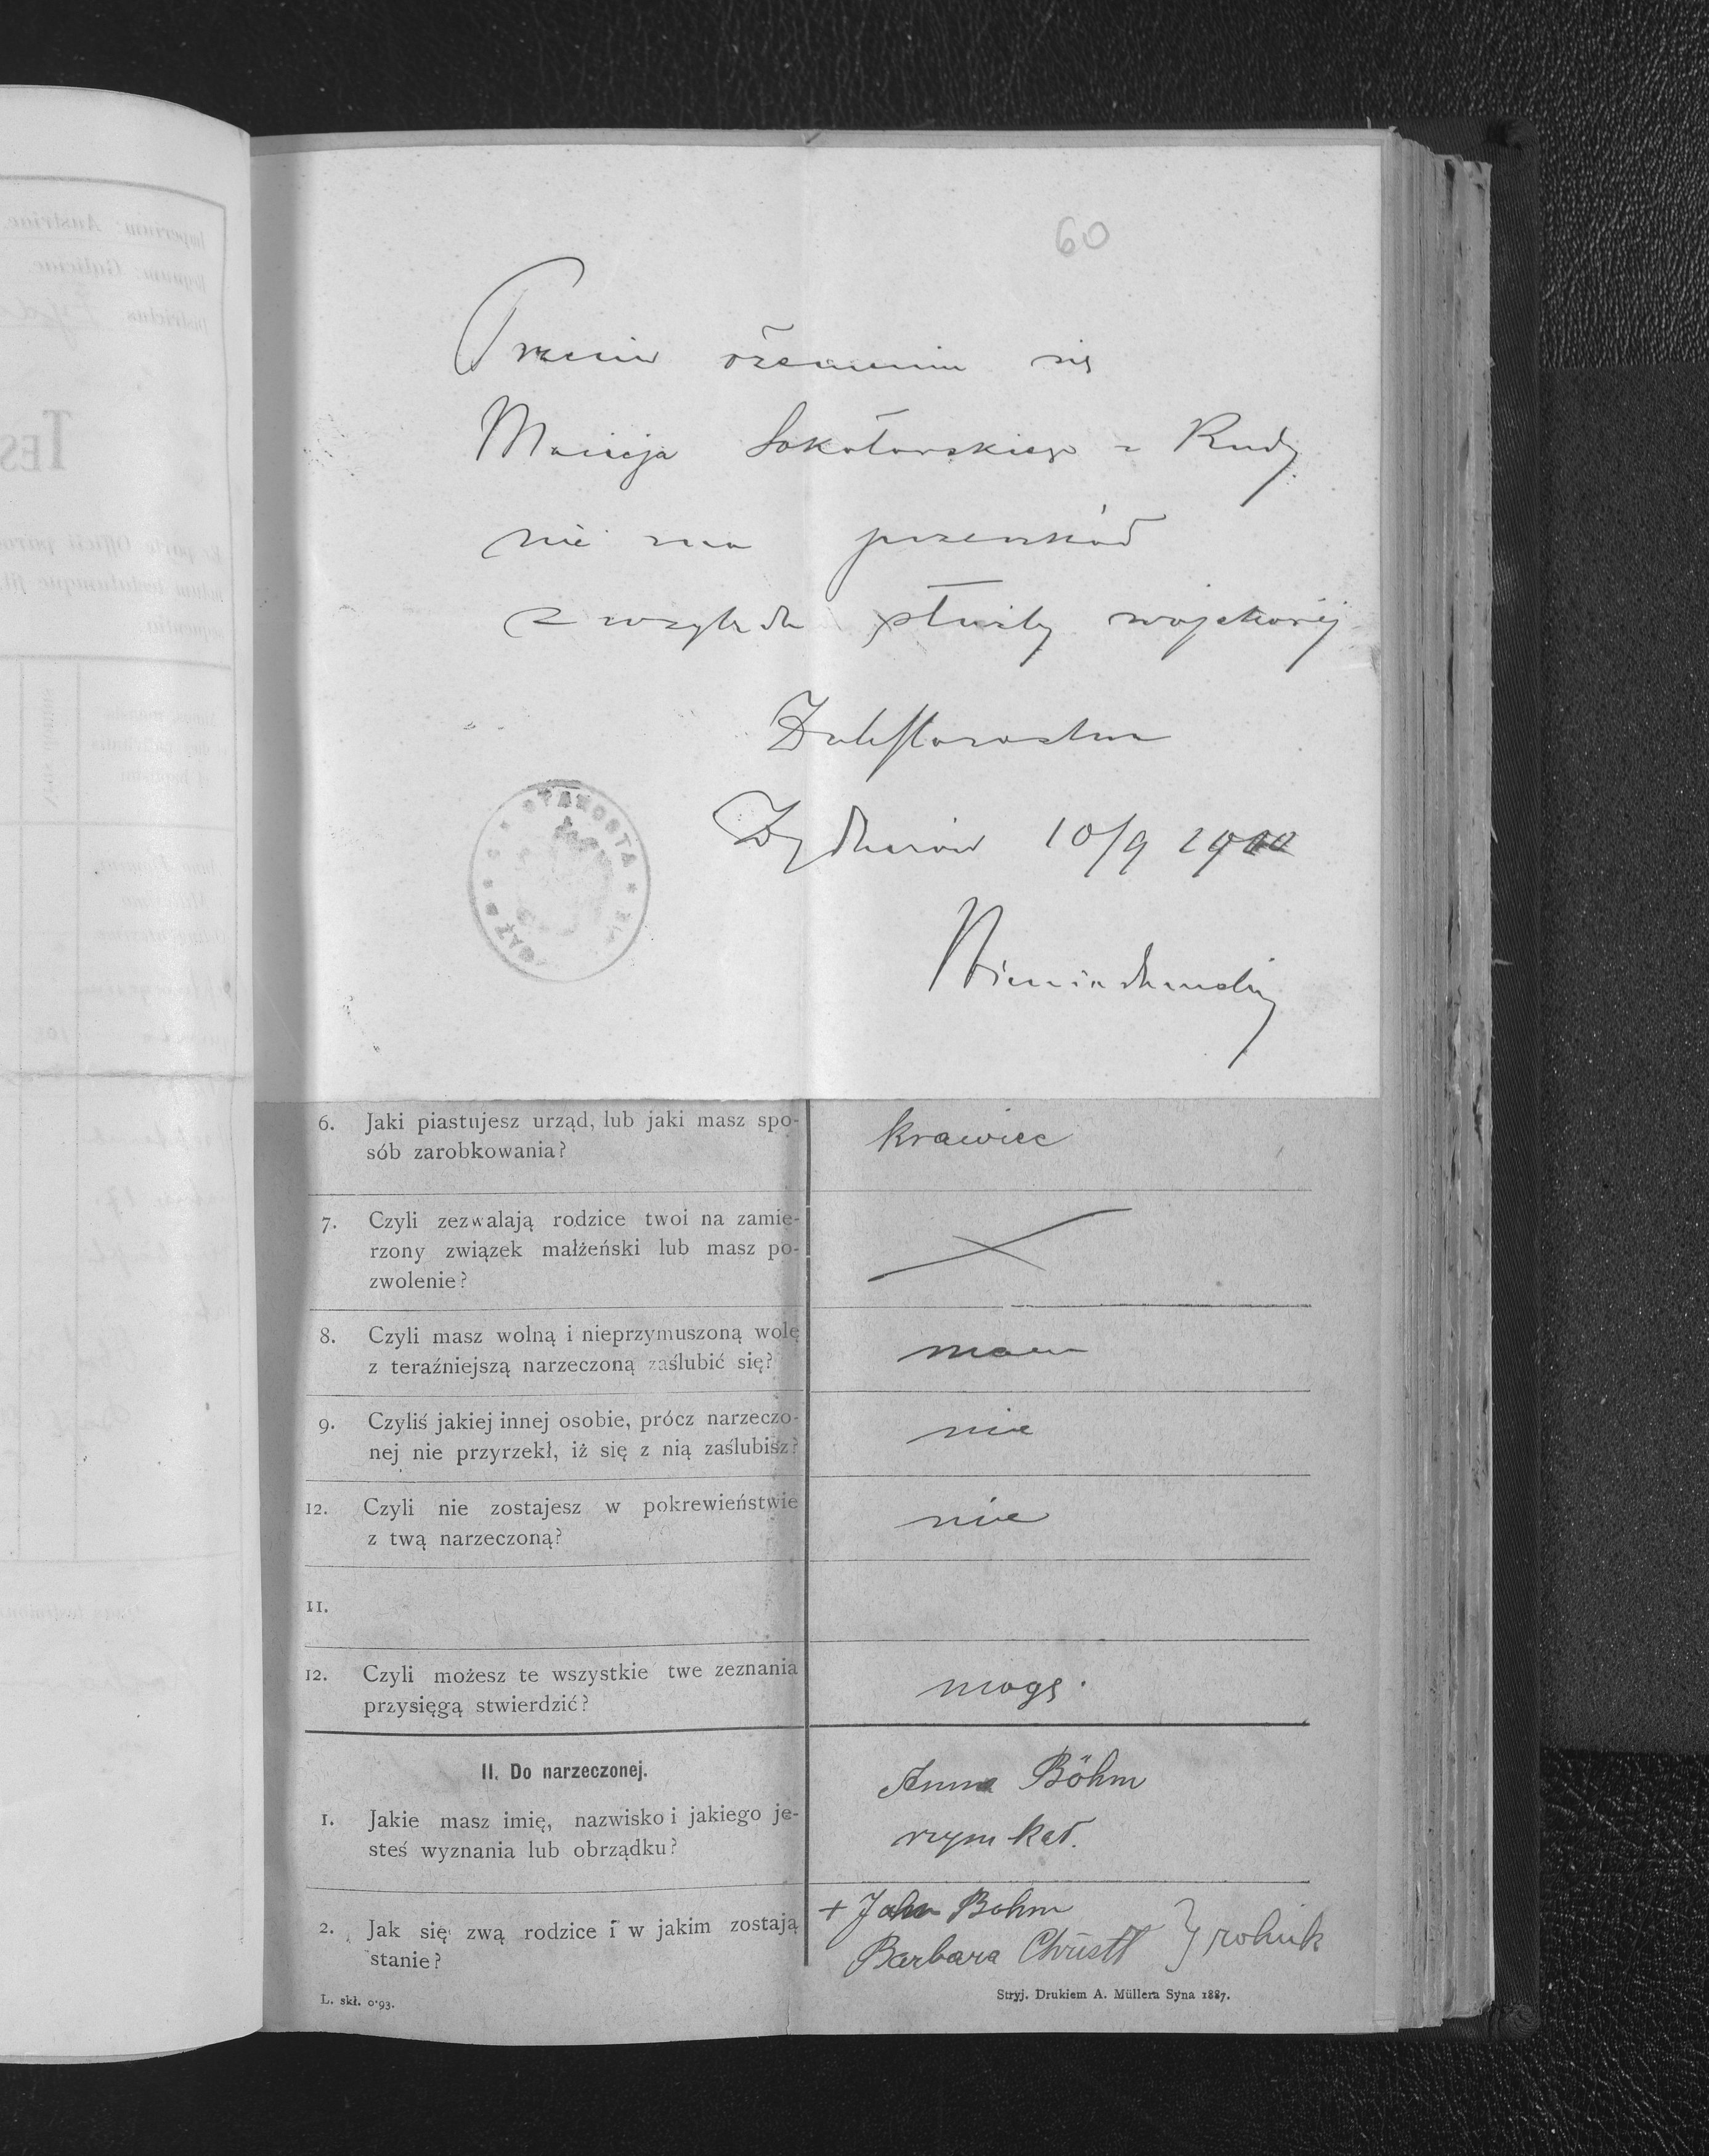 60
Przeciw ożenieniu się
Macieja Sokołowskiego z Rudy
nie ma przeszkód
z względu służby wojskowéj
Żydaczów 10/9 1900
STAROSTA
6. Jaki piastujesz urząd, lub jaki masz spo-
sób zarobkowania?
krawiec
7. Czyli zezwalają rodzice twoi na zamie-
rzony związek małżeński lub masz po-
zwolenie?
8. Czyli masz wolną i nieprzymuszoną wolę
z teraźniejszą narzeczoną zaślubić się?
mam
9. Czyliś jakiej innej osobie, prócz narzeczo-
nej nie przyrzekł, iż się z nią zaślubisz?
nie
12. Czyli nie zostajesz w pokrewieństwie
z twą narzeczoną?
nie
11.
12. Czyli możesz te wszystkie twe zeznania
przysięgą stwierdzić?
mogę.
II. Do narzeczonej.
1. Jakie masz imię, nazwisko i jakiego je-
steś wyznania lub obrządku?
Anna Böhm
rzym kat.
2. Jak się zwą rodzice i w jakim zostają
stanie?
+ John Bohm
Barbara Christl } rolnik
L. skł. 0·93.
Stryj. Drukiem A. Müllera Syna 1887.
Imperium: Austriae.
Regnum: Galiciae.
Districtus
TES